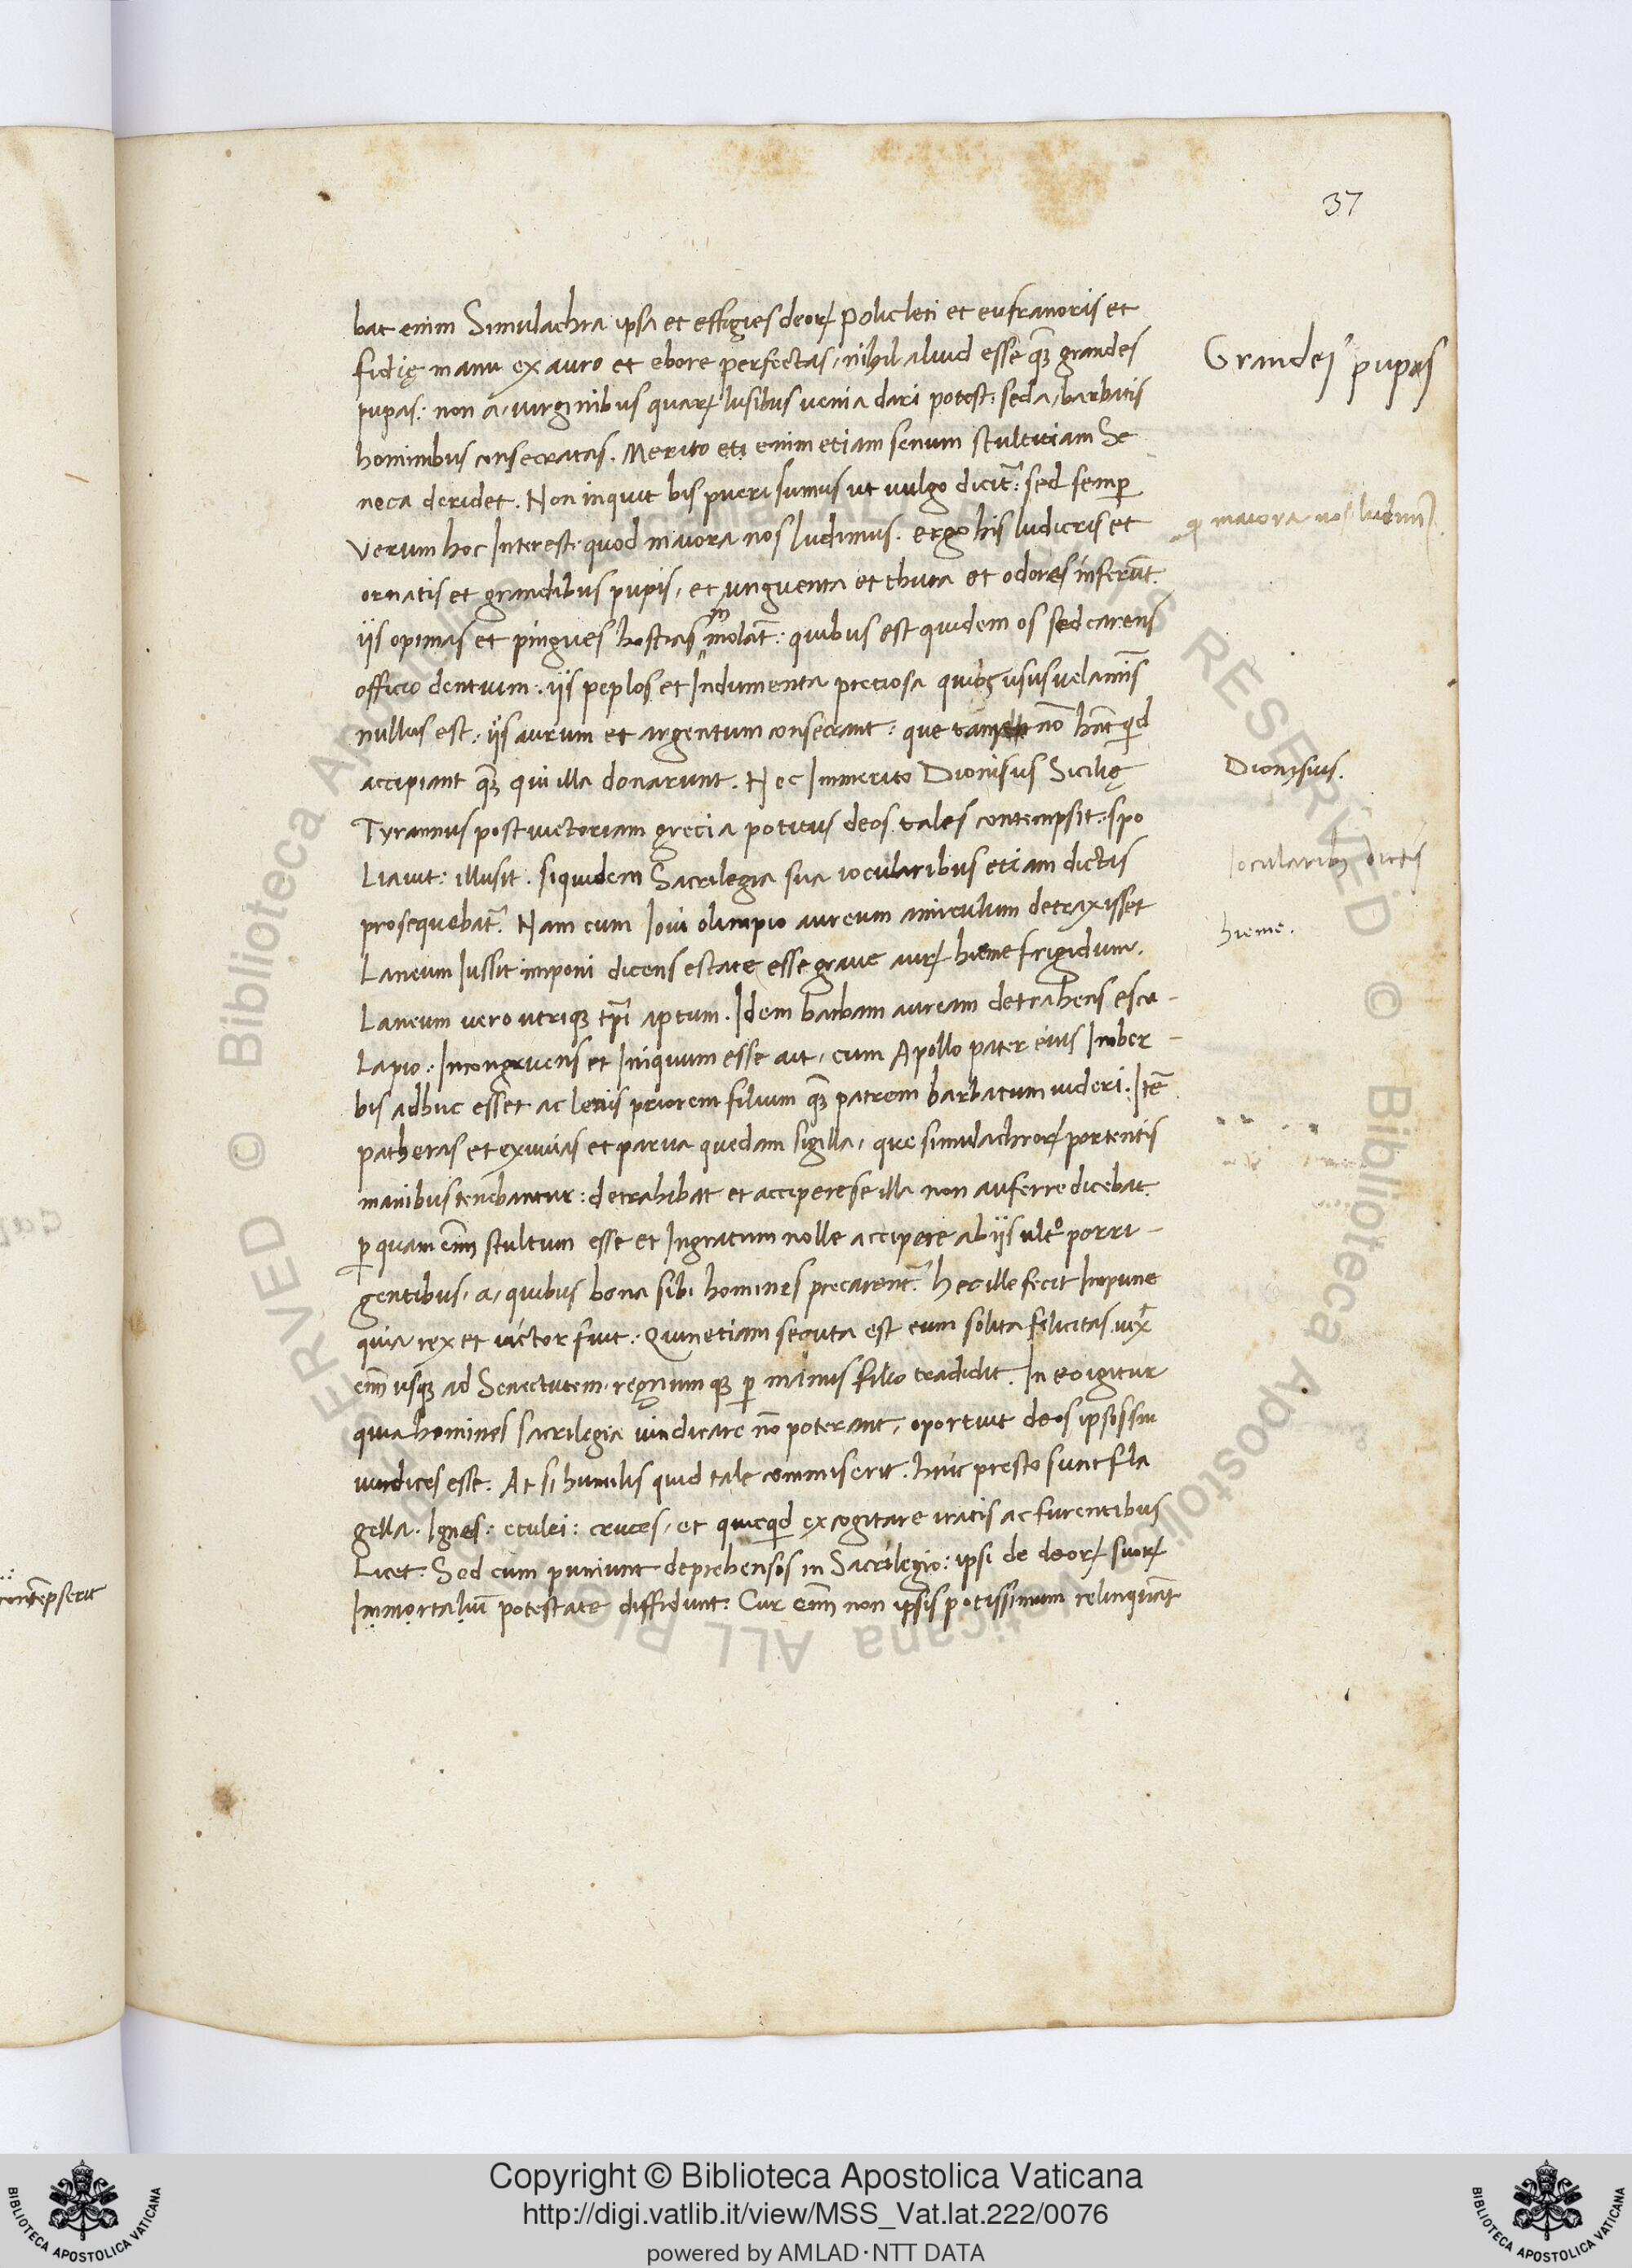 37
bat enim Simulachra ipsa et effigies deoꝝ policleti et eufranoris et
fidię manu ex auro et ebore perfectas, nihil aliud esse qᷓꝫ grandes
pupas: non a, uirginibus quaꝝ lusibus uenia dari potest: sed a, barbatis
hominibus consecratas. Merito etī enim etiam senum stultitiam Se
neca deridet. Non inquit bis pueri sumus ut uulgo dicit᷑: sed semꝑ
verum hoc Interest: quod maiora nos ludimus. ergo his ludicris et
ornatis et grandibus pupis, et unguenta et thura et odores inferūt.
iis opimas et pingues hostias ˄im molāt: quibus est quidem os sed carens
officio dentium: iis peplos et Indumenta preciosa quibꝫ usus uelaminis̄
nullus est: iis aurum et argentum consecrant: que tamen nō hn̄t qd̄
accipiant qᷓꝫ qui illa donarunt. Nec Immerito Dionisus Sicilię
Tyrannus post uictoriam grecia potitus deos tales contempsit: spo
Liauit: illusit. siquidem Sacrilegia sua iocularibus etiam dictis
prosequebat᷑. Nam cum Ioui olimpio aureum amiculum detraxisset
Laneum Iussit imponi dicens estate esse graue auꝝ hieme frigidum.
Laneum uero utriqꝫ tp̄i aptum. Idem barbam auream detrahens escu-
Lapio: Incongruens et Iniquum esse ait, cum Apollo pater eius Imber-
bis adhuc esset ac leuis priorem filium qᷓꝫ patrem barbatum uideri. Itē
patheras et exuuias et parua quedam sigilla, que simulachroꝝ portentis
manibus tenebantur: detrahibat et accipere se illa non auferre dicebat.
ꝑ quam enī stultum esse et Ingratum nolle accipere ab iis ultº porri-
gentibus, a, quibus bona sibi homines precarent᷑. hec ille fecit Impune
quia rex et uictor fuit: Quin etiam secuta est eum solita felicitas. uixͭ
enī usqꝫ ad Senectutem, regnum qꝫ ꝑ manus filio tradidit. In eo igitur
quia homines sacrilegia uindicare nō poterant, oportuit deos ipsos sui
uindices esse. At si humilis quid tale commiserit. huic presto sunt fla
gella. Ignes: eculei: cruces, et quicqd̄ excogitare iratis ac furentibus
Licet. Sed cum puniunt deprehensos in Sacrilegio: ipsi de deoꝝ suoꝝ
Immortaliū potestate diffidunt. Cur enī non ipsis potissimum relinquāt
Grandes pupas
maiora nos ludim᷒
Dionysius.
Iocularibꝫ dictis
hieme.
contēpserit
Copyright © Biblioteca Apostolica Vaticana
http://digi.vatlib.it/view/MSS_Vat.lat.222/0076
powered by AMLAD·NTT DATA
BIBLIOTECA APOSTOLICA VATICANA
BIBLIOTECA APOSTOLICA VATICANA
© Biblioteca Apostolica Vaticana ALL RIGHTS RESERVED © Biblioteca Apostolica Vaticana ALL RIGHTS RESERVED